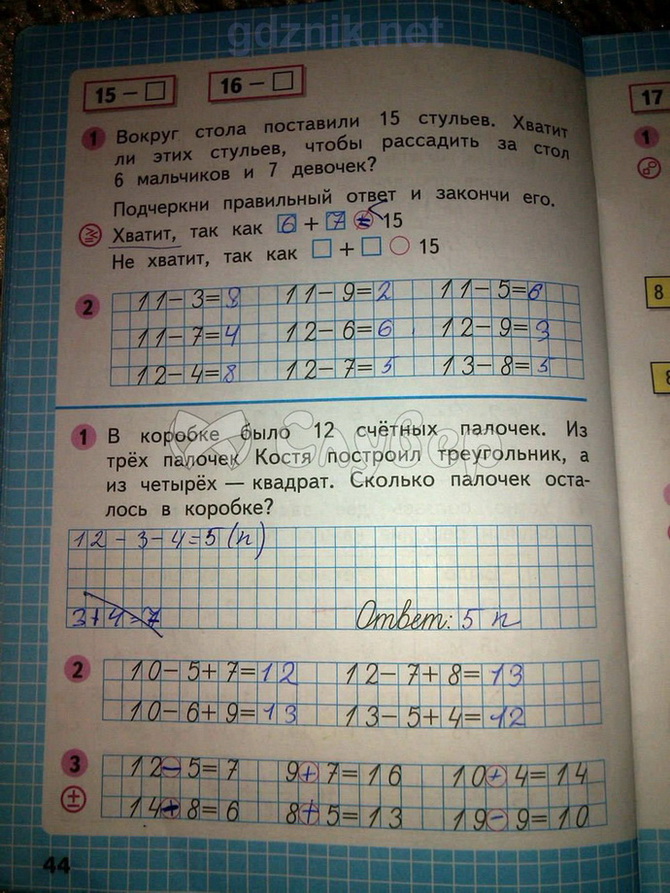 gdznik.net
15 – □ 16 – □ 17
1 Вокруг стола поставили 15 стульев. Хватит
ли этих стульев, чтобы рассадить за стол
6 мальчиков и 7 девочек?
Подчеркни правильный ответ и закончи его.
Хватит, так как 6 + 7 < 15
Не хватит, так как □ + □ ○ 15
2
11 – 3 = 8 11 – 9 = 2 11 – 5 = 6
11 – 7 = 4 12 – 6 = 6 12 – 9 = 3
12 – 4 = 8 12 – 7 = 5 13 – 8 = 5
1 В коробке было 12 счётных палочек. Из
трёх палочек Костя построил треугольник, а
из четырёх — квадрат. Сколько палочек оста-
лось в коробке?
Слувер
12 – 3 – 4 = 5 (п)
3 + 4 = 7 Ответ: 5 п
2
10 – 5 + 7 = 12 12 – 7 + 8 = 13
10 – 6 + 9 = 13 13 – 5 + 4 = 12
3
12 – 5 = 7 9 + 7 = 16 10 + 4 = 14
14 – 8 = 6 8 + 5 = 13 19 – 9 = 10
44
1
8